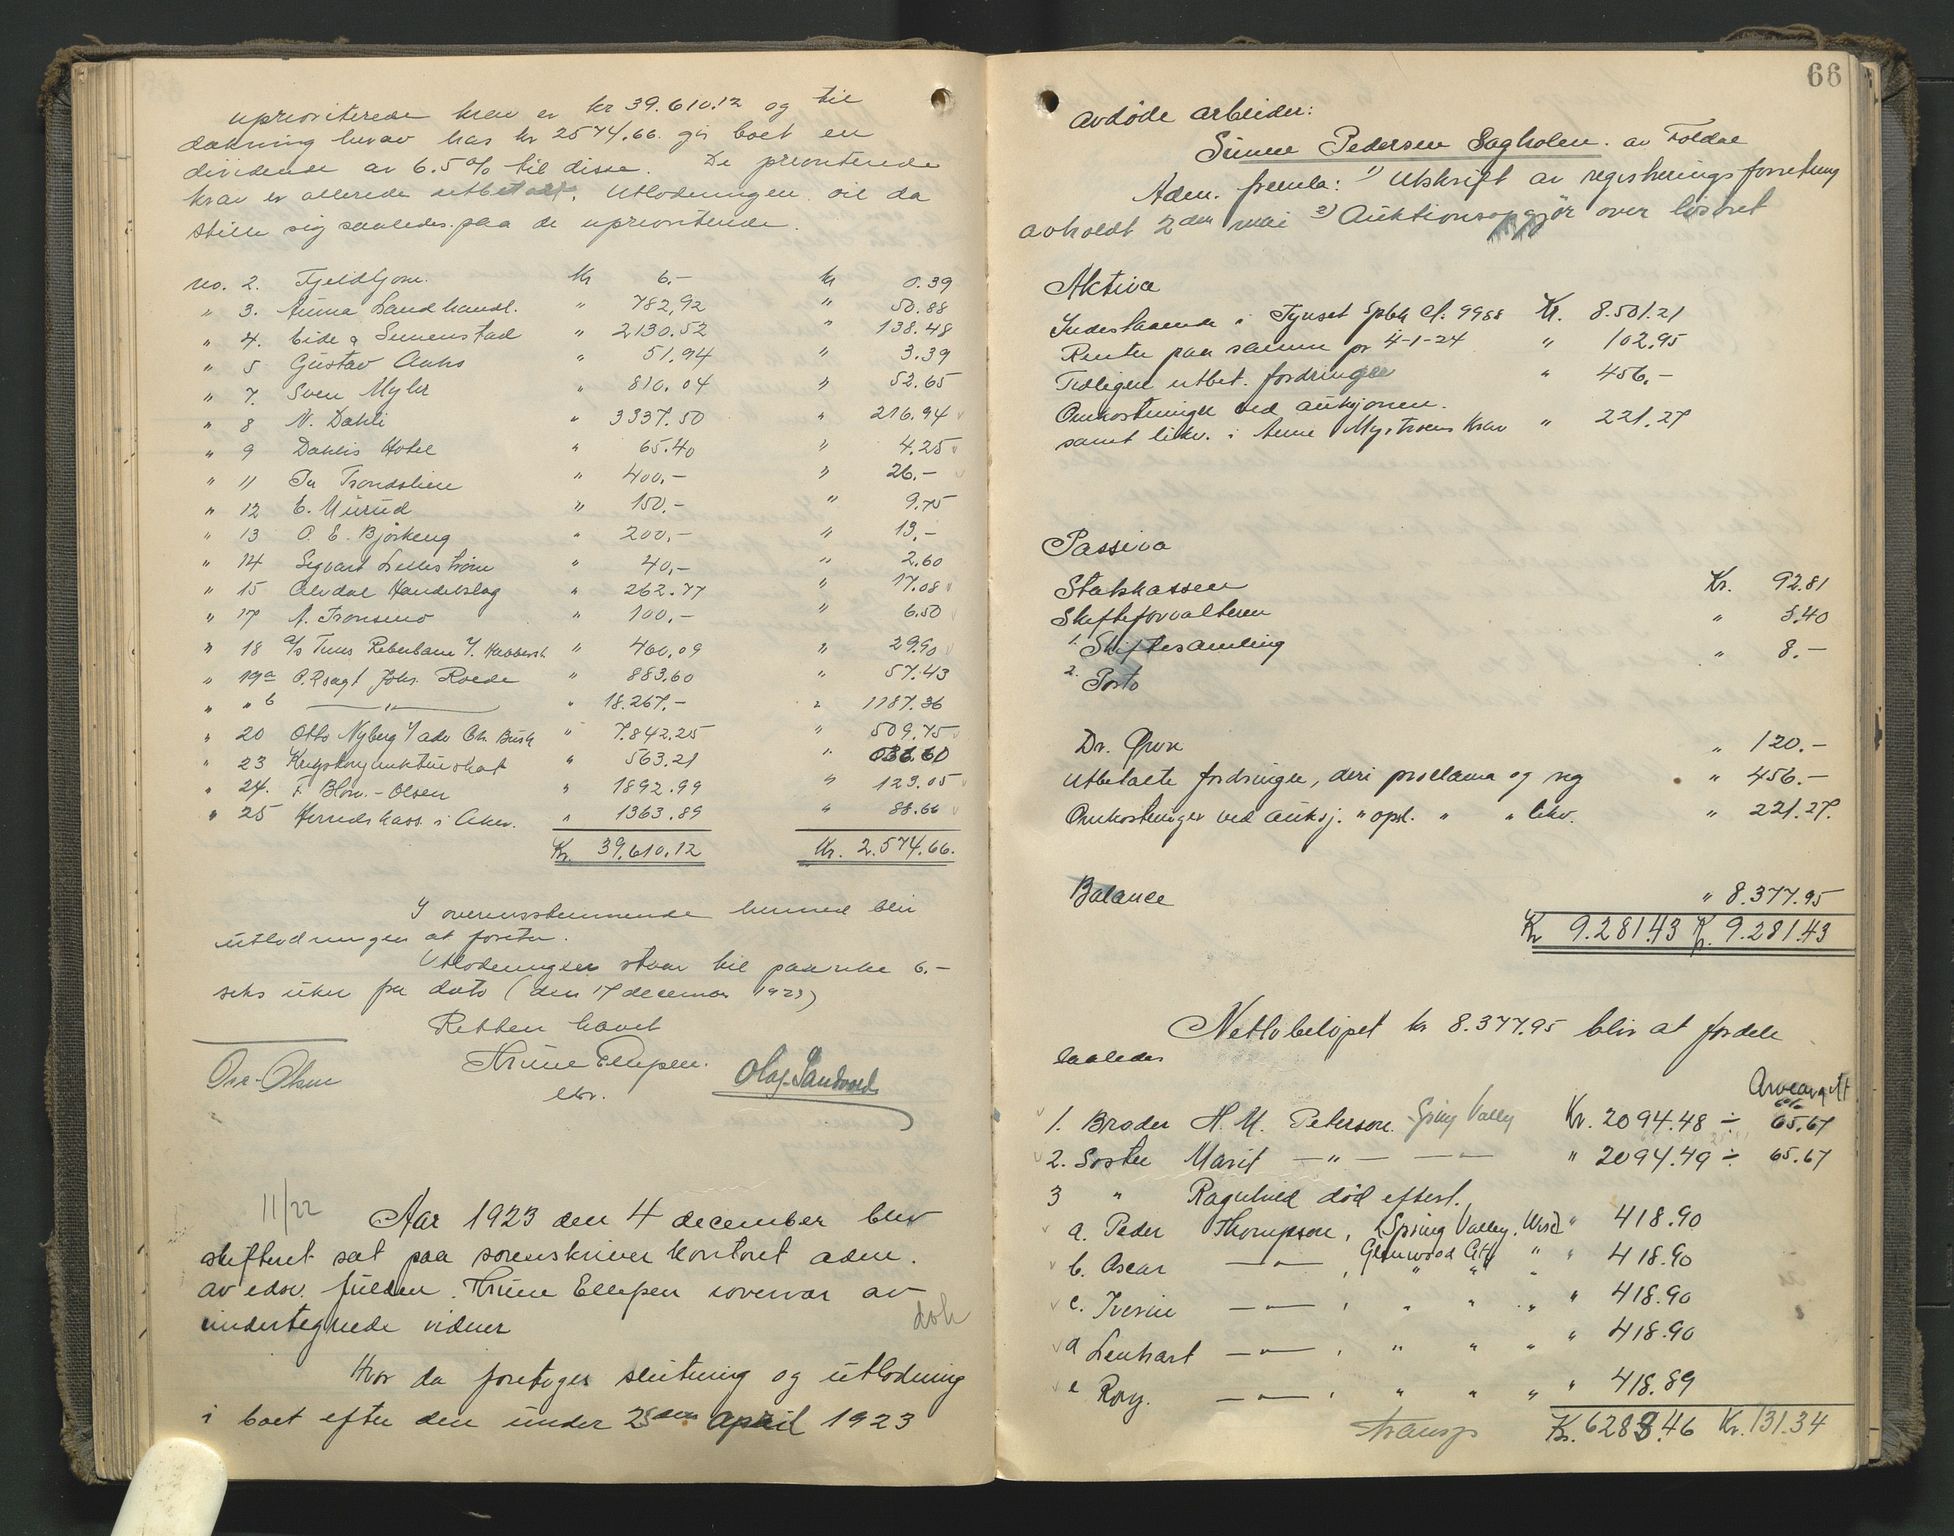 upriorriterede krav er kr 39.610.12 og til
dækning herav has kr 2574.66. gir boet en
dividende av 6.5% til disse. De prioriterede
krav er allerede utbetalt. Utlodningen vil da
stille sig saaledes paa de upriorriterede.
no. 2. Fjeldljom. Kr 6.- Kr 0.39
" 3. Auma Landhandl. " 782,92 " 50.88
" 4. Eide & Simenstad " 2130.52 " 138.48
" 5 Gustav " 51.94 " 3.39
" 7. Sven Myhr " 810.04 " 52.65
" 8 N. Dahli " 3337.50 " 216.94
" 9 Dahlis Hotel " 65.40 " 4.25
" 11 Pr Trondslien " 400.- " 26.-
" 12 E. Murud " 150.- " 9.75
" 13 O. E. Bjørkeng " 200.- " 13.-
" 14 Sigvart Lillestrøm " 40.- " 2.60
" 15 Alvdal Handelslag " 262.77 " 17.08
" 17 A. Tronsmo " 100.- " 6.50
" 18 a/s Reberbane v/ " 460.09 " 29.90
" 19a O.R.sagf. Johs. Roede " 883.60 " 57.43
" " b " " 18.267.- " 1187.36
" 20 Otto Nyberg v/ adv Chr. Bush " 7.842.25 " 509.75
" 23 Krigskonjunkturskat " 563.21 " 36.60
" 24. F. Blom.-Olsen " 1892.99 " 123.05
" 25 Herredskass. i Aker. " 1363.89 " 88.66
Kr. 39.610.12 Kr. 2.574.66.
I overensstemmende hermed blir
utlodningen at foreta.
Utlodningen staar til paaanke 6.-
seks uker fra dato (den 17 december 1923)
Retten hævet
Ove Olsen Thrine Ellefsen. Olaf Sandvold
cbr.
11/22 Aar 1923 den 4 december blev
skifteret sat paa sorenskriver kontoret adm.
av edsv. fuldm. Thrine Ellefsen i overvær av
undertegnede vidner dok
Hvor da foretoges slutning og utlodning
i boet efter den under 25den april 1923
66
avdøde arbeider:
Simen Pedersen Sagholen. av Foldal
Adm. fremla: 1) Utskrift av registreringsforretning
avholdt 2den mai 2) Auktionsopgjør over løsøret
Aktiva
Indestaaende i Tynset Spbk cf. 9988 Kr. 8.501.21
Renter paa samme pr 4-1-24 " 102.95
Tidligere utbet. fordringer " 456.-
Omkostninger ved auksjonen.
samt likv. i Anne Mystroens Krav " 221.27
Passiva
Statskassen Kr. 92.81
Skifteforvalteren " 5.40
1. Skiftesamling " 8.-
2. Porto
Dr. Øvre " 120.-
Utbetalte fordringer, deri proclama og reg " 456.-
Omkostninger ved auksj. " opsl. " " likv. " 221.27.
Balance " 8.377.95
Kr 9.281.43 Kr. 9.281.43
Nettobeløpet kr 8.377.95 blir at fordele
saaledes
Arveavgift
6%
1. Broder H. M. Peterson. Spring Valley Kr. 2094.48 ÷ 65.67
2. Søster Marit —"— —— " 2094.49 ÷ 65.67
3 " Ragnhild død efterl.
a. Peder Thompson, Spring Valley. Wisc " 418.90
b. Oscar —"—, Glenwood City " " 418.90
c. Iverine —"—, " " " " 418.90
d Lenhart —"—, " " " " 418.90
e Roy. —"—, " " " " 418.89
transp Kr. 6283.46 Kr. 131.34